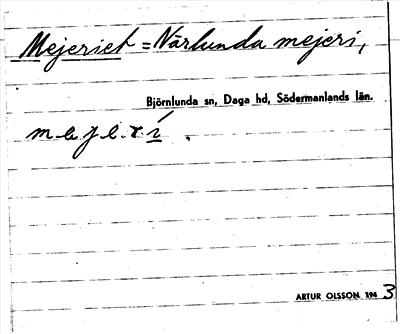 Mejeriet = Närlunda mejeri,
Björnlunda sn, Daga hd, Södermanlands län.
m e j e r í .
ARTUR OLSSON 1943